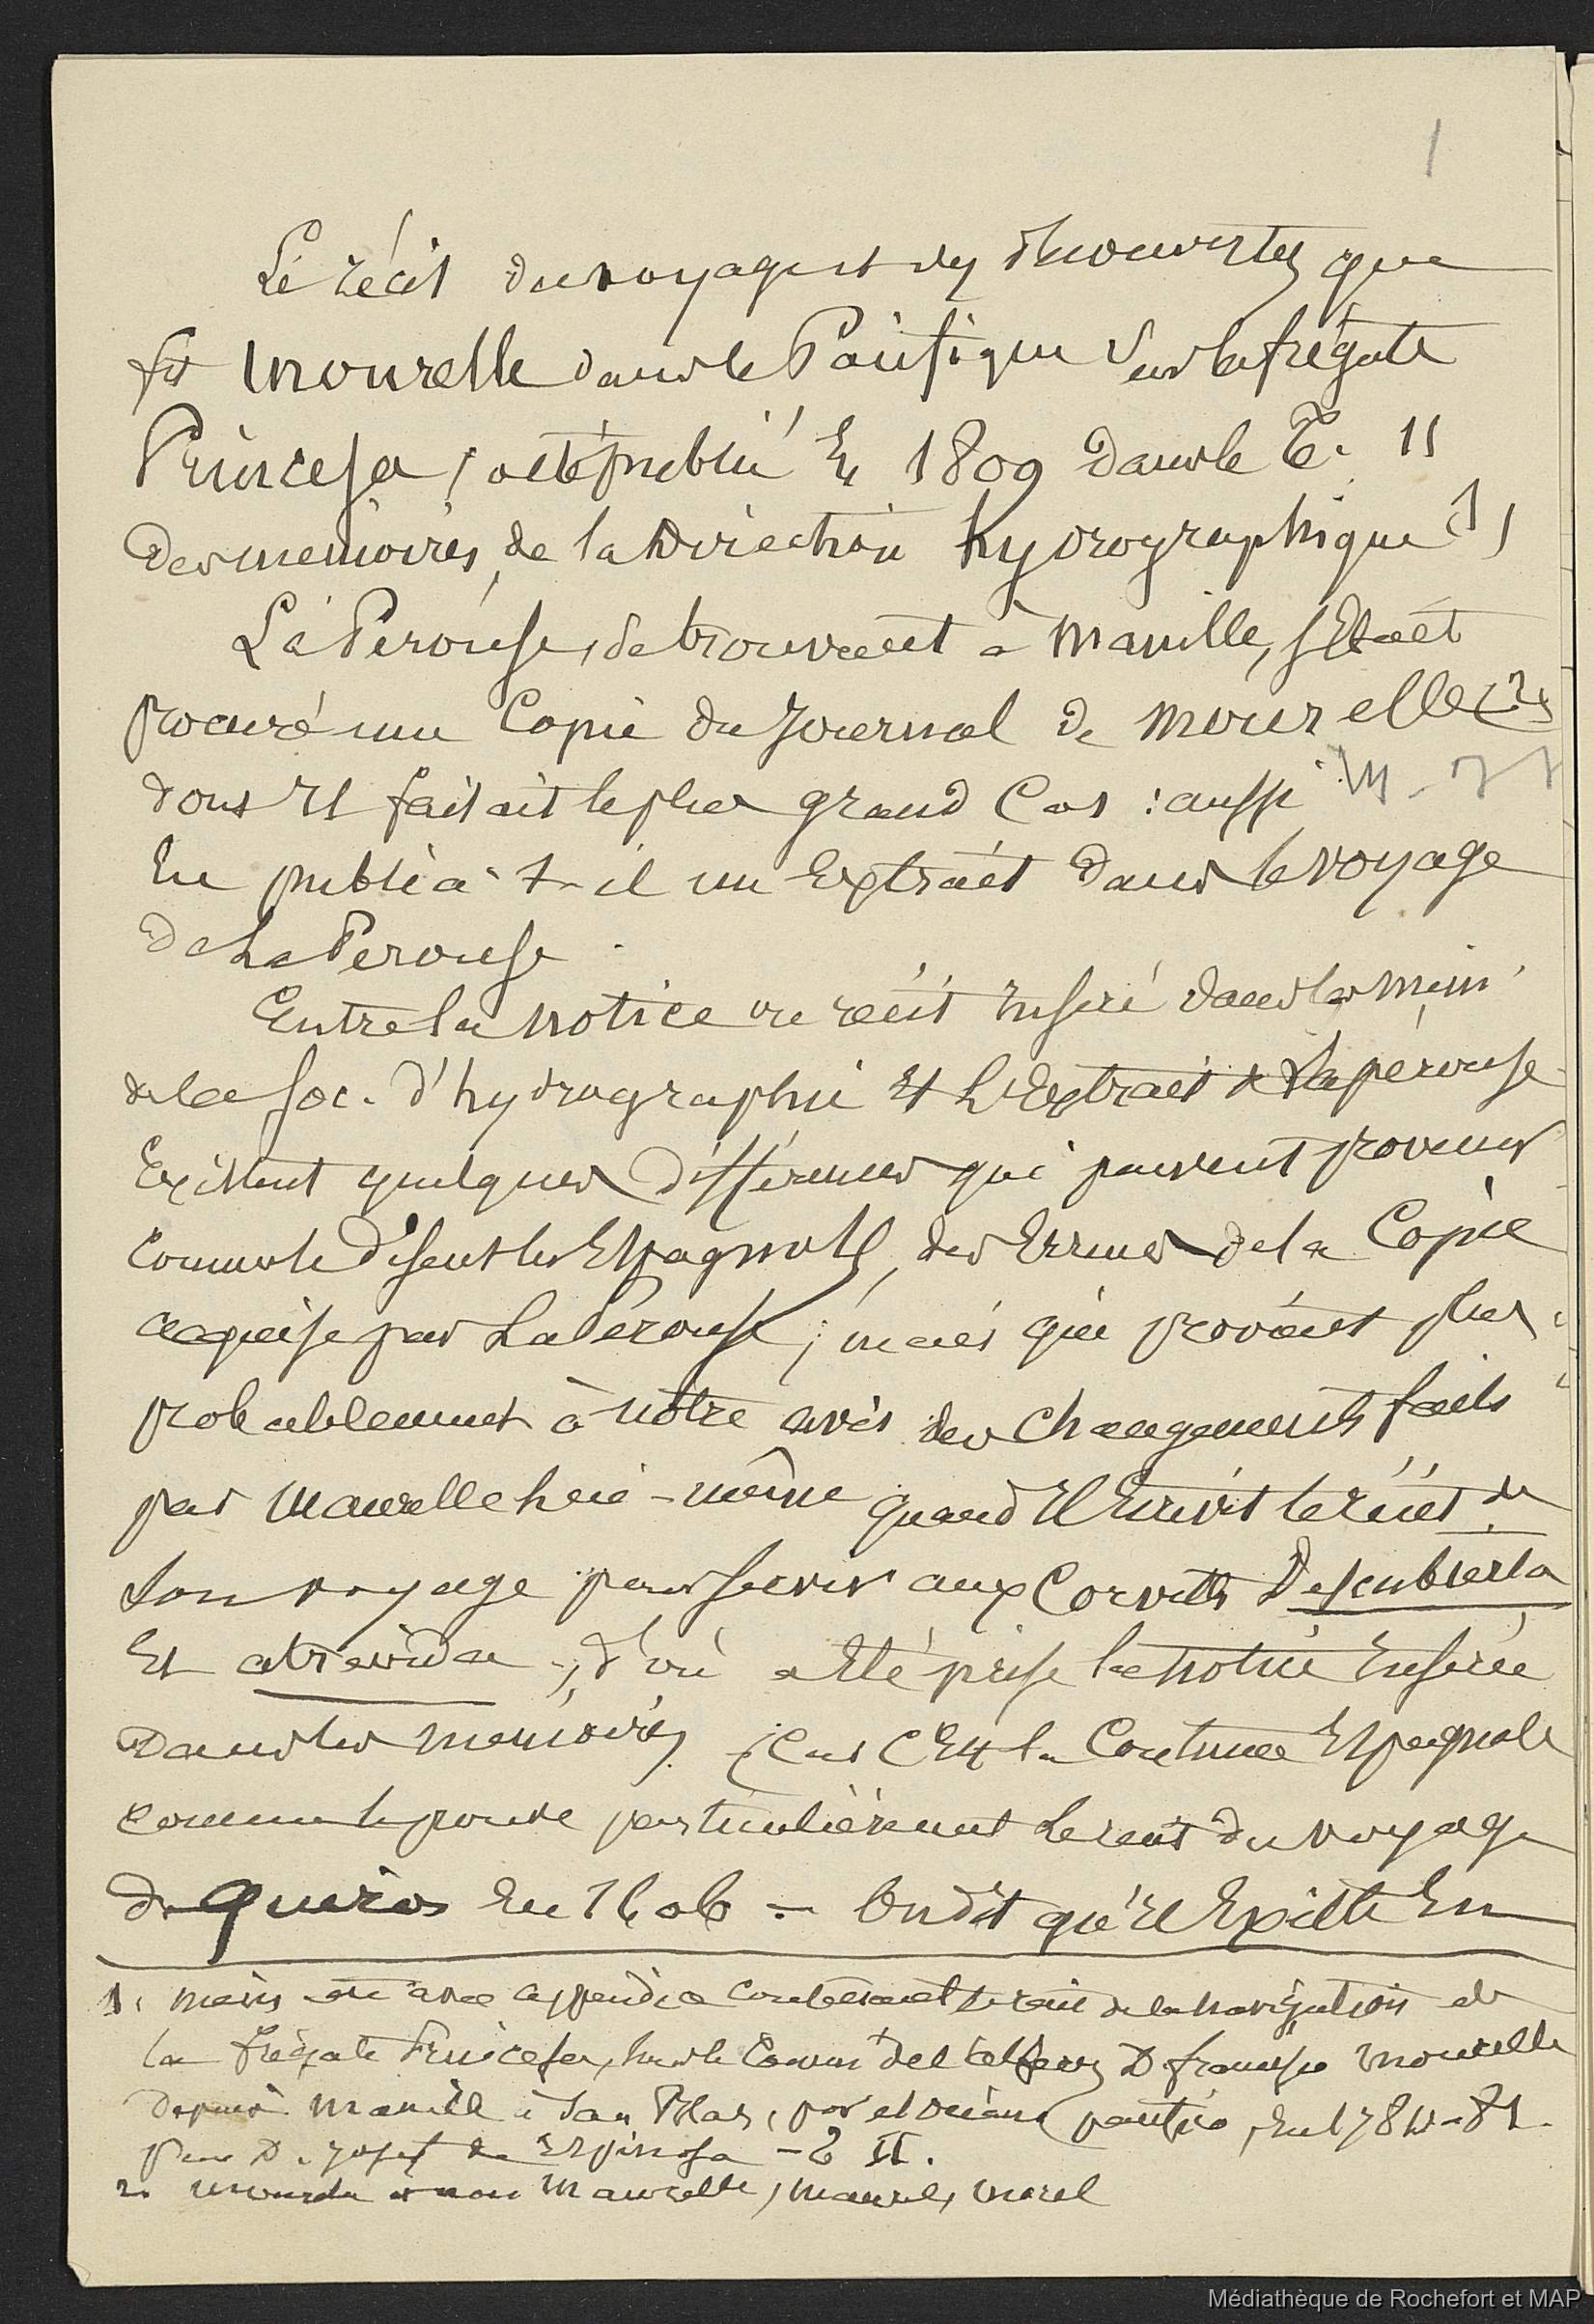 1
Le récit du voyage et des découvertes que
fit Mourelle dans le Pacifique sur la frégate
Princesa, a été publié en 1809 dans le T. II
des mémoires de la Direction hydrographique (1)
La Perouse, se trouvant à Manille, s'était
procuré une Copie du Journal de Mourelle (2)
dont il faisait le plus grand Cas : aussi
en publia-t-il un Extrait dans le voyage
de La Perouse
Entre la notice ou récit inséré dans les mém.
de la Soc. d'hydrographie et l'Extrait de Lapérouse
Existent quelques différences qui peuvent provenir
comme le disent les Espagnols, des Erreurs de la Copie
acquise par La Pérouse ; mais qui provient plus
probablement à notre avis des changements faits
par Maurelle lui-même quand il écrivit le récit de
son voyage pour servir aux Corvettes Descubierta
et atrevida, d'où a été prise la notice insérée
dans les mémoires. Car c'est la Coutume Espagnole
comme le prouve particulièrement le récit du voyage
de Quiros en 1606 - On dit qu'il Existe En
1. appendice contenant le récit de la navigation de
la Frégate Princesa, sous le Comm. del D. francisco Mourelle
depuis Manille à San Blas, por el océano pacifico, en 1780-81.
par D. Josef de Espinosa - T II.
2. Mourelle et non Maurelle, Maurel, Morel
Médiathèque de Rochefort et MAP